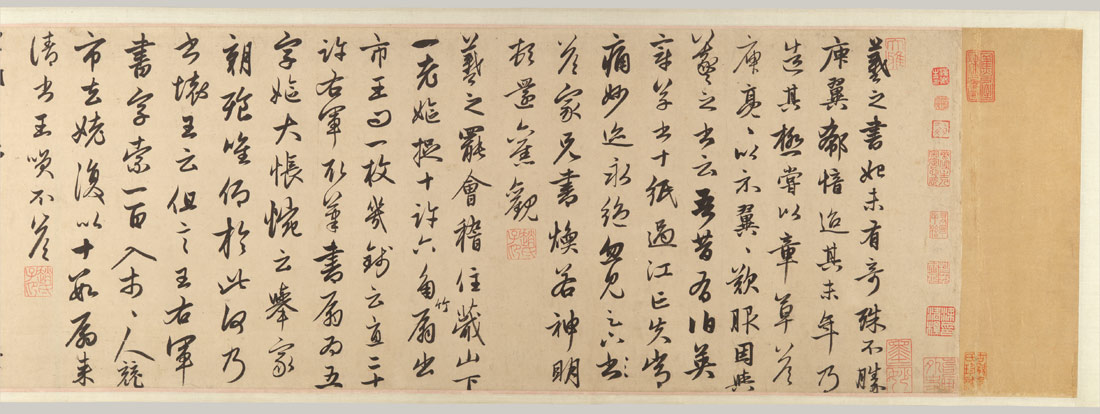 羲之書初未有奇殊不勝
庾翼郗愔迨其末年乃
造其極嘗以章草答
庾亮、以示翼、歎服因與
羲之書云吾昔有伯英
章草書十紙過江亡失常
痛妙迹永絕忽見足下書
答家兄書煥若神明
頓還舊觀
羲之罷會稽住蕺山下
一老嫗捉十許六角竹扇出
市王問一枚幾錢云直二十
許右軍取筆書扇為五
字嫗大悵惋云舉家
朝飧唯仰於此何乃
書壞王云但言王右軍
書字索一百入市、人競
市去姥復以十數扇來
請書王笑不答